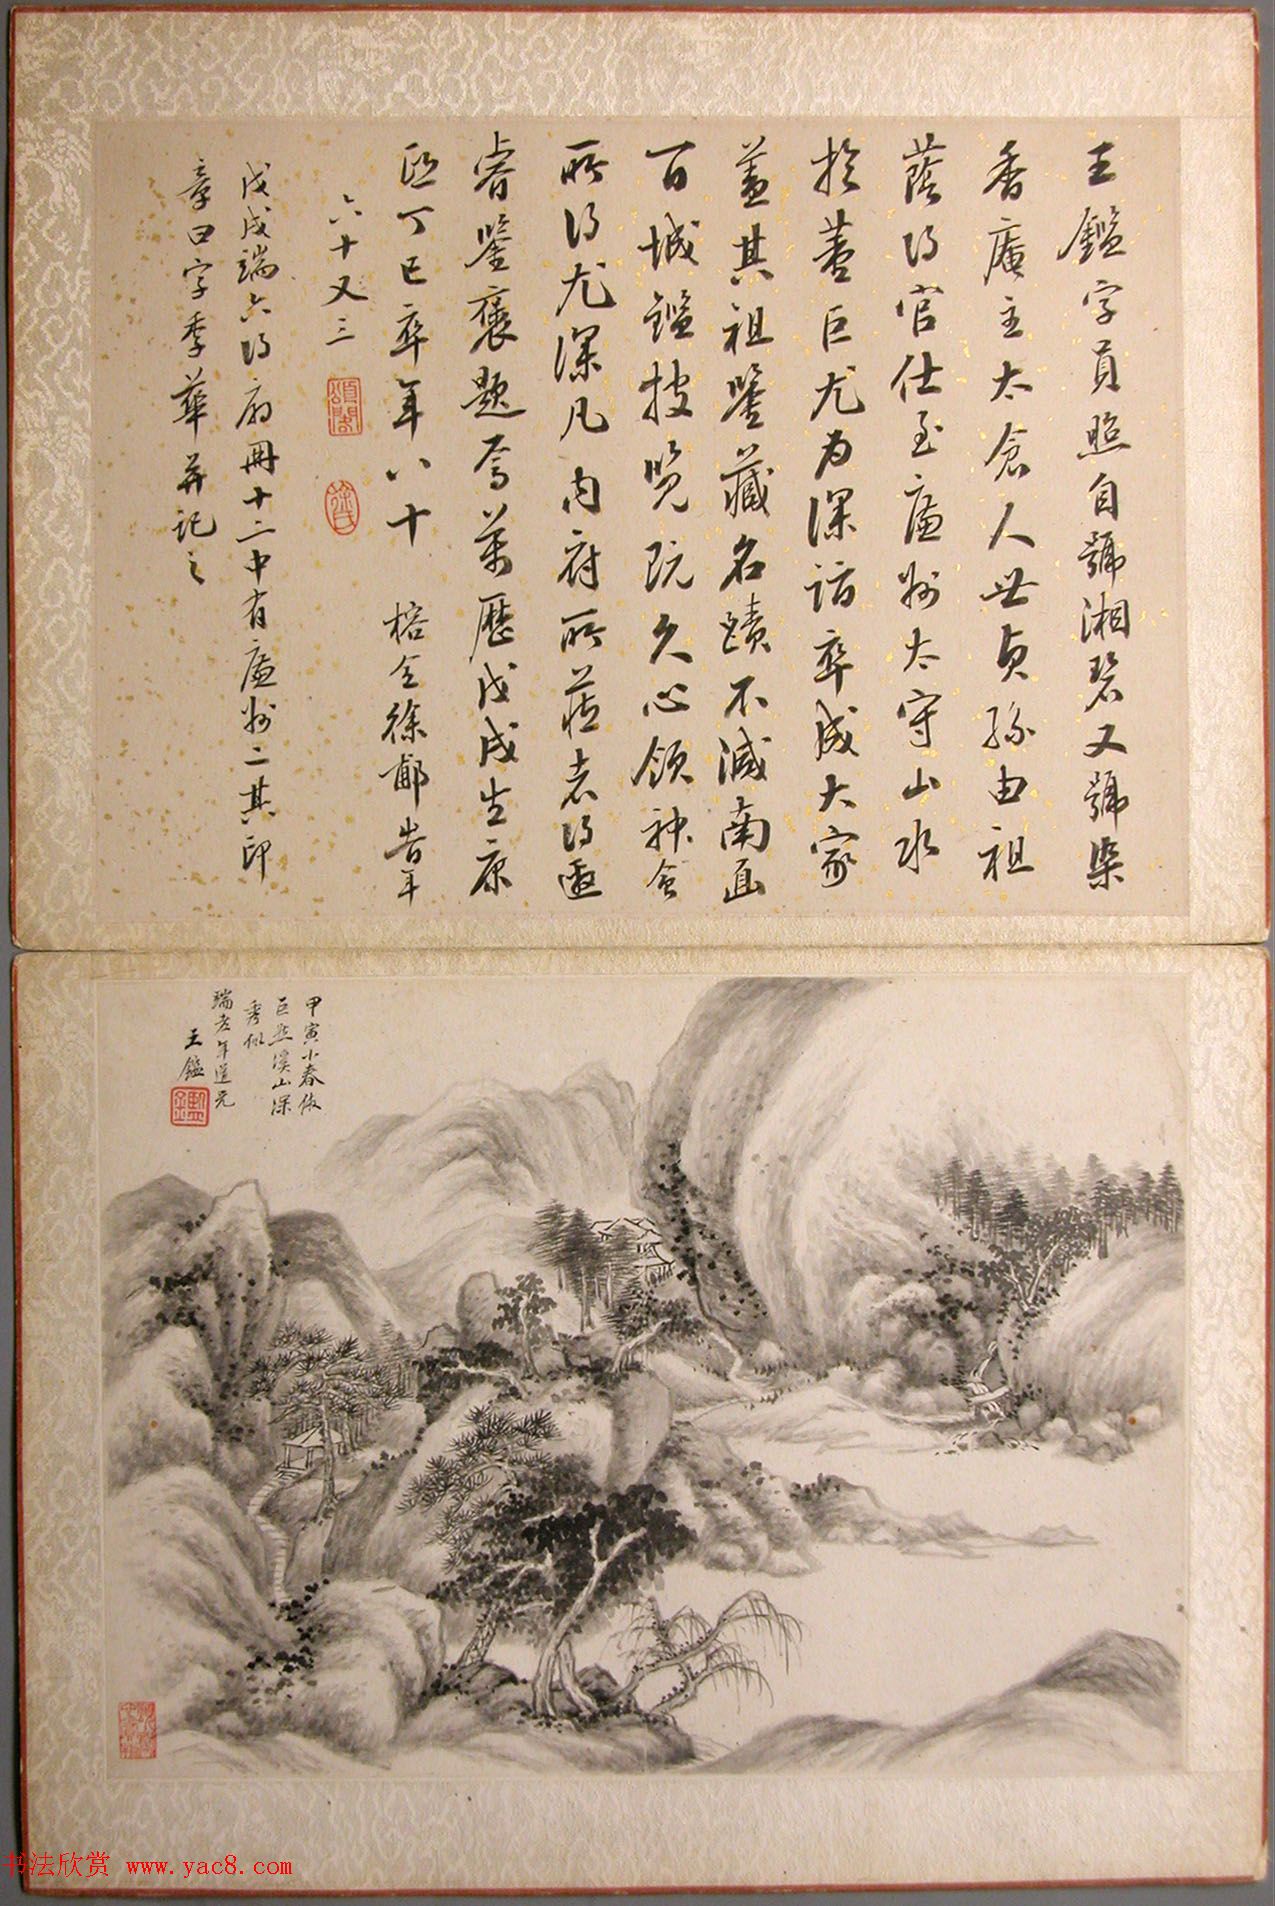 王鑑字員照自號湘碧又號染
香庵主太倉人世貞孫由祖
蔭得官仕至廉州太守山水
於董巨尤为深詣卒成大家
蓋其祖鑒藏名蹟不減南面
百城鑑披覽既久心領神會
所得尤深凡內府所莊者得邀
睿鑒褒題焉萬歷戊戌生康
熙丁巳卒年八十
榕全徐郙時年
六十又三
頌閣
徐氏
戊戌端六得扇冊十二中有廉州二其印
章曰字季華并記之
甲寅小春倣
巨然溪山深
秀似
端老年道兄
王鑑
書法欣赏 www.yac8.com